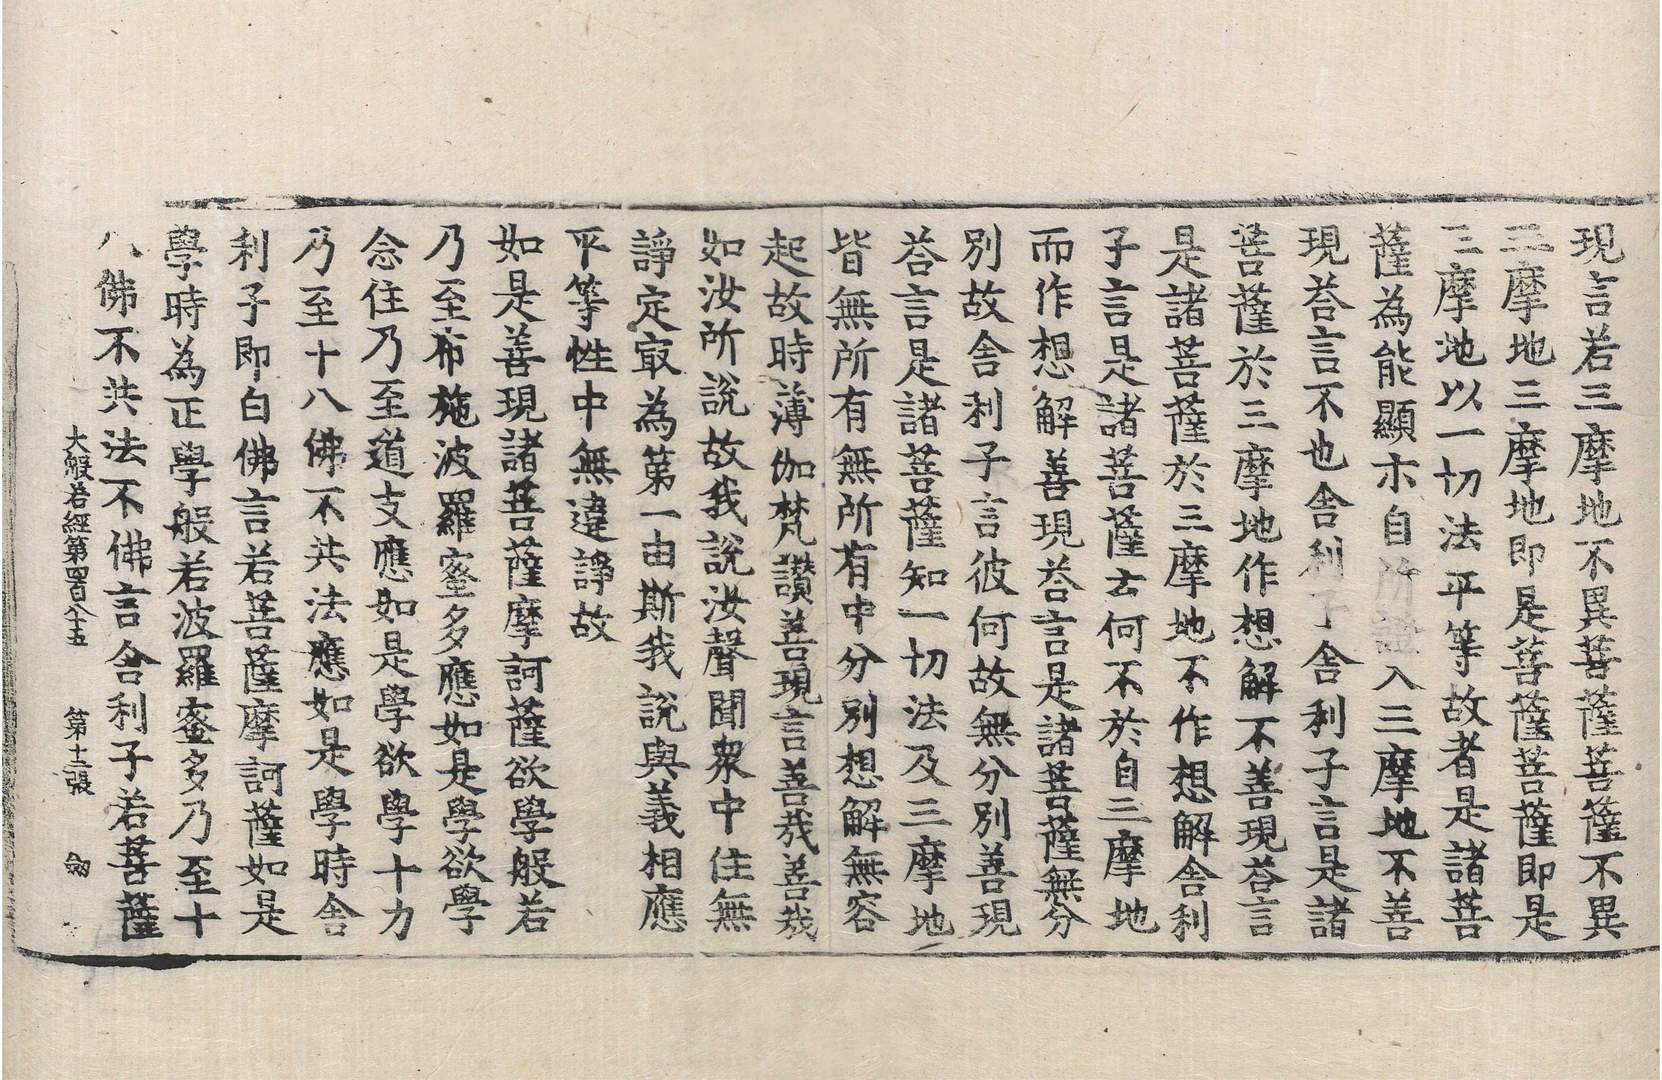 現言若三摩地不異菩薩菩薩不異
三摩地三摩地即是菩薩菩薩即是
三摩地以一切法平等故者是諸菩
薩為能顯示自所證入三摩地不善
現荅言不也舍利子舍利子言是諸
菩薩於三摩地作想解不善現荅言
是諸菩薩於三摩地不作想解舍利
子言是諸菩薩云何不於自三摩地
而作想解善現荅言是諸菩薩無分
別故舍利子言彼何故無分別善現
荅言是諸菩薩知一切法及三摩地
皆無所有無所有中分別想解無容
起故時薄伽梵讚善現言善哉善哉
如汝所說故我說汝聲聞衆中住無
諍定冣為第一由斯我說與義相應
平等性中無違諍故
如是善現諸菩薩摩訶薩欲學般若
乃至布施波羅蜜多應如是學欲學
念住乃至道支應如是學欲學十力
乃至十八佛不共法應如是學時舍
利子即白佛言若菩薩摩訶薩如是
學時為正學般若波羅蜜多乃至十
八佛不共法不佛言舍利子若菩薩
大般若經第四百八十五　第十二張